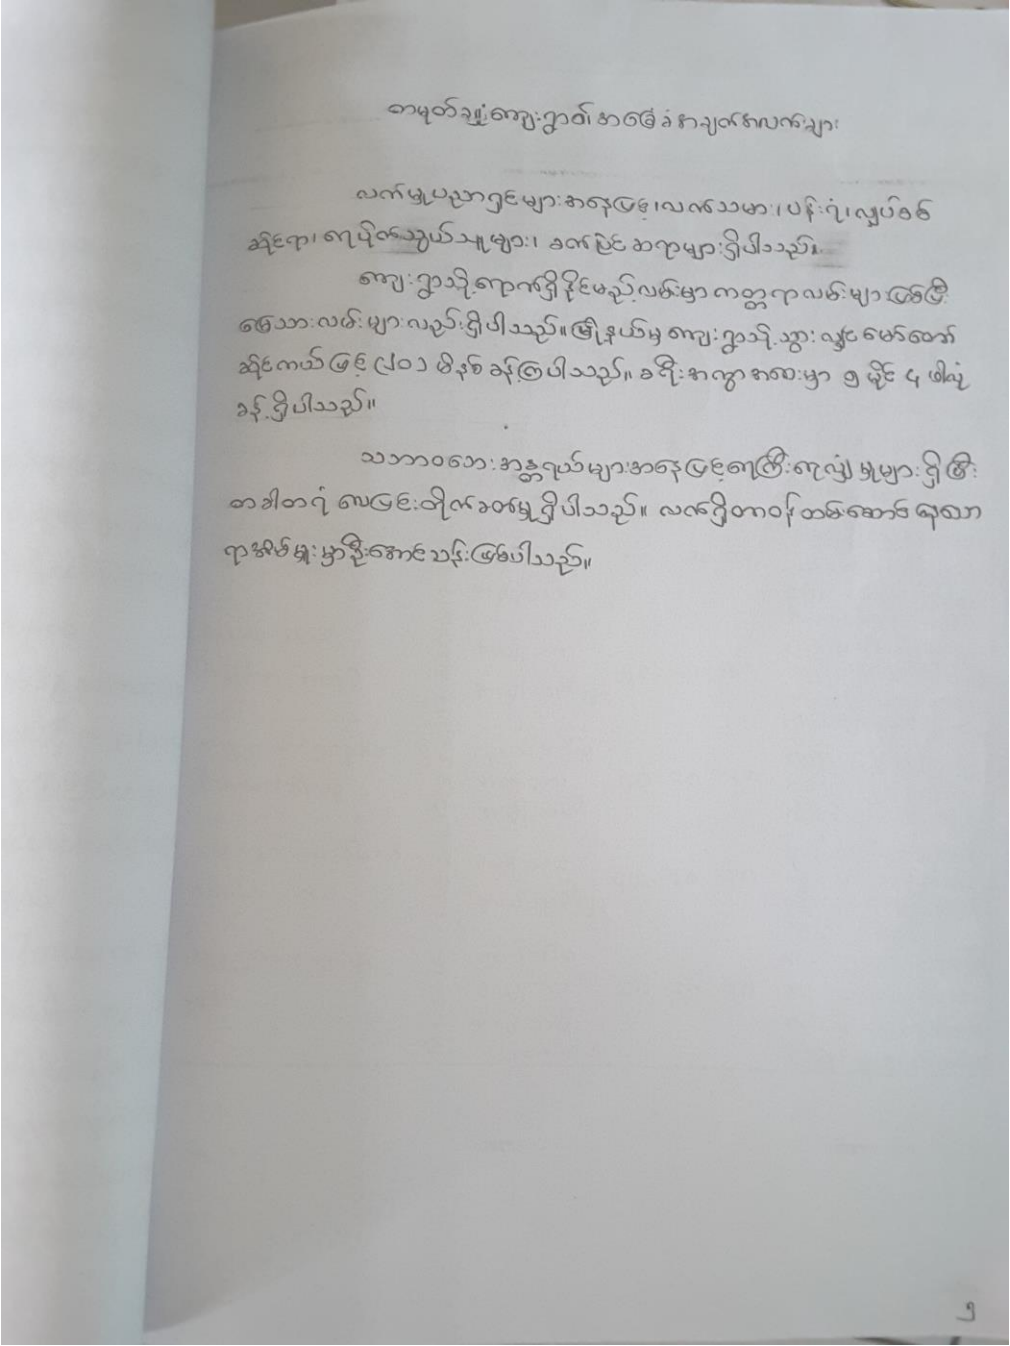 တမုတ်ချုံးကျေးရွာ၏ အခြေခံအချက်အလက်များ
လက်မှုပညာရှင်များအနေဖြင့်၊ လက်သမား၊ ပန်းရံ၊ လျှပ်စစ်
ဆိုင်ရာ၊ ရေပိုက်သွယ်သူများ၊ စက်ပြင်ဆရာများရှိပါသည်။
ကျေးရွာသို့ရောက်ရှိနိုင်မည့်လမ်းမှာ ကတ္တရာလမ်းများဖြစ်ပြီး
မြေသားလမ်းများလည်းရှိပါသည်။ မြို့နယ်မှ ကျေးရွာသို့သွားလျှင် မော်တော်
ဆိုင်ကယ်ဖြင့် (၂၀) မိနစ်ခန့်ကြာပါသည်။ ခရီးအကွာအဝေးမှာ ၅ မိုင် ၄ ဖာလုံ
ခန့်ရှိပါသည်။
သဘာဝဘေးအန္တရာယ်များအနေဖြင့် ရေကြီးရေလျှံမှုများရှိပြီး
တခါတရံ လေပြင်းတိုက်ခတ်မှုရှိပါသည်။ လက်ရှိတာဝန်ထမ်းဆောင်နေသော
ရာအိမ်မှူးမှာ ဦးအောင်သန်းဖြစ်ပါသည်။
၅